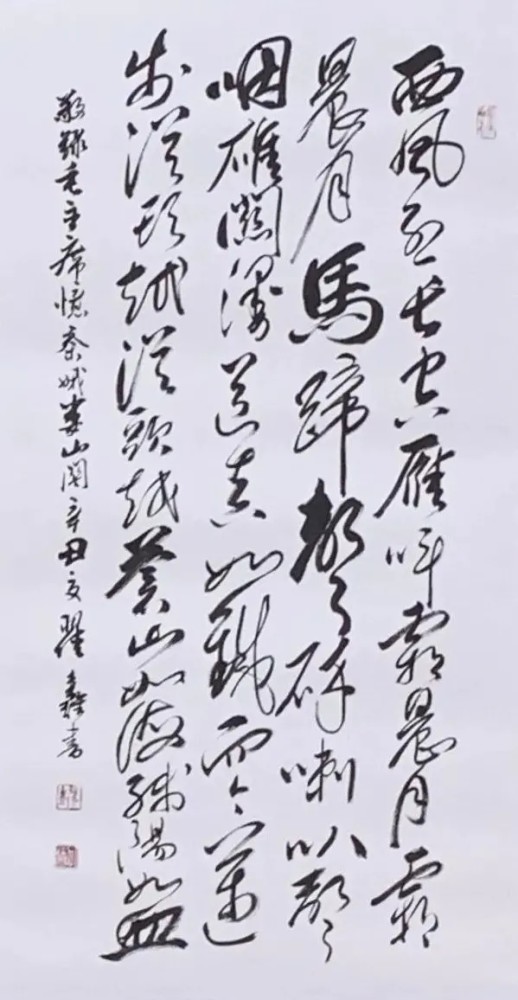 西風烈長空雁叫霜晨月霜
晨月馬蹄聲碎喇叭聲
咽雄關漫道真如鐵而今邁
步從頭越從頭越蒼山如海殘陽如血
敬錄毛主席憶秦娥婁山關辛丑夏翟書